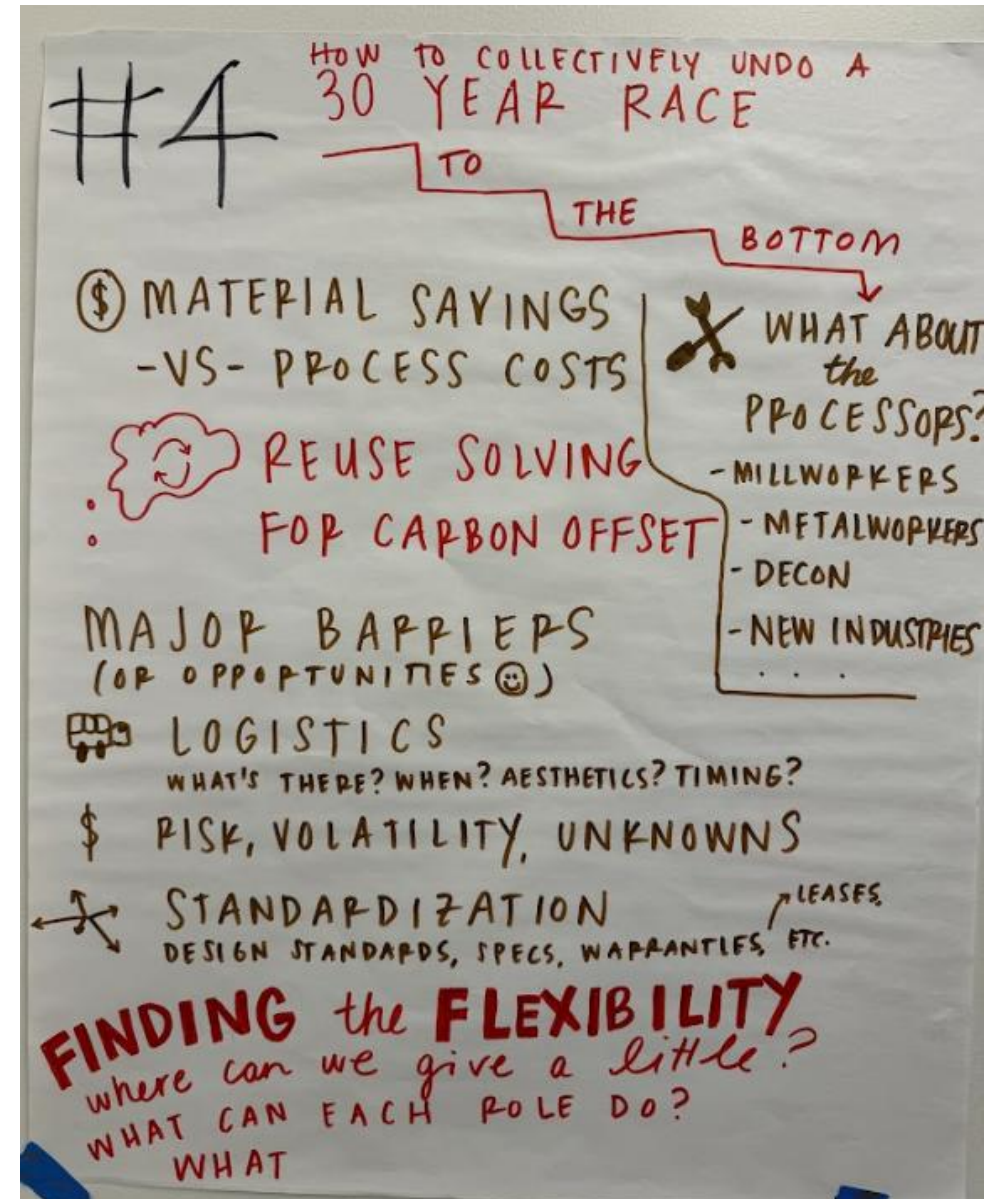 #4
HOW TO COLLECTIVELY UNDO A
30 YEAR RACE
TO
THE
BOTTOM
$ MATERIAL SAVINGS
-VS- PROCESS COSTS
REUSE SOLVING
FOR CARBON OFFSET
WHAT ABOUT
the
PROCESSORS?
- MILLWORKERS
- METALWORKERS
- DECON
- NEW INDUSTRIES
. . .
MAJOR BARRIERS
(OR OPPORTUNITIES ☺)
LOGISTICS
WHAT'S THERE? WHEN? AESTHETICS? TIMING?
$ RISK, VOLATILITY, UNKNOWNS
STANDARDIZATION
DESIGN STANDARDS, SPECS, WARRANTIES, LEASES,
ETC.
FINDING the FLEXIBILITY
where can we give a little?
WHAT CAN EACH ROLE DO?
WHAT